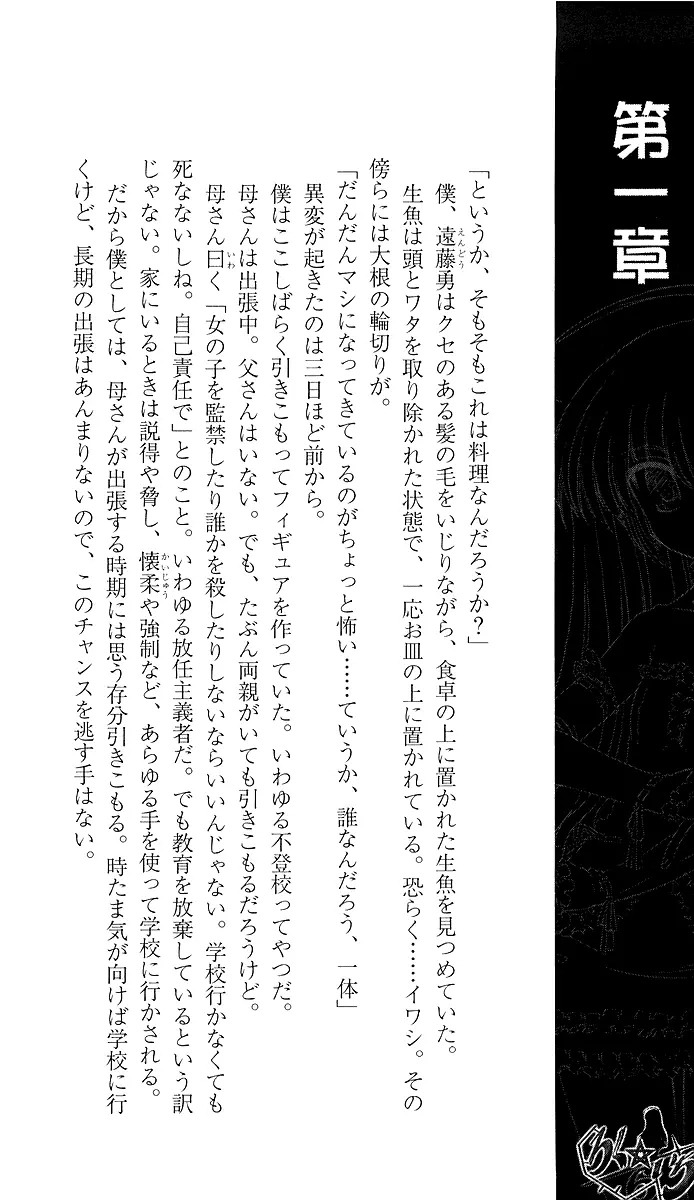 第一章
「というか、そもそもこれは料理なんだろうか?」
僕、遠藤勇はクセのある髪の毛をいじりながら、食卓の上に置かれた生魚を見つめていた。
えんどう
生魚は頭とワタを取り除かれた状態で、一応お皿の上に置かれている。恐らく……イワシ。その
傍らには大根の輪切りが。
「だんだんマシになってきているのがちょっと怖い……ていうか、誰なんだろう、一体」
異変が起きたのは三日ほど前から。
僕はここしばらく引きこもってフィギュアを作っていた。いわゆる不登校ってやつだ。
母さんは出張中。父さんはいない。でも、たぶん両親がいても引きこもるだろうけど。
母さん曰く「女の子を監禁したり誰かを殺したりしないならいいんじゃない。学校行かなくても
いわ
死なないしね。自己責任で」とのこと。いわゆる放任主義者だ。でも教育を放棄しているという訳
じゃない。家にいるときは説得や脅し、懐柔や強制など、あらゆる手を使って学校に行かされる。
かいじゅう
だから僕としては、母さんが出張する時期には思う存分引きこもる。時たま気が向けば学校に行
くけど、長期の出張はあんまりないので、このチャンスを逃す手はない。